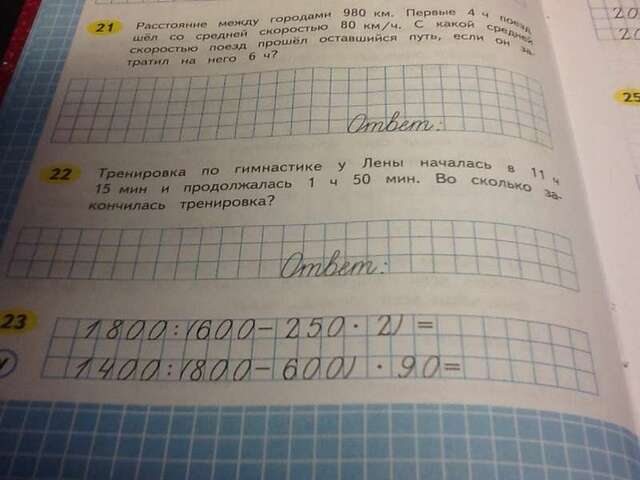 21 Расстояние между городами 980 км. Первые 4 ч поезд
шёл со средней скоростью 80 км/ч. С какой средней
скоростью поезд прошёл оставшийся путь, если он за-
тратил на него 6 ч?
Ответ:
22 Тренировка по гимнастике у Лены началась в 11 ч
15 мин и продолжалась 1 ч 50 мин. Во сколько за-
кончилась тренировка?
Ответ:
23 1800:(600-250·2)=
1400:(800-600)·90=
20
20
25